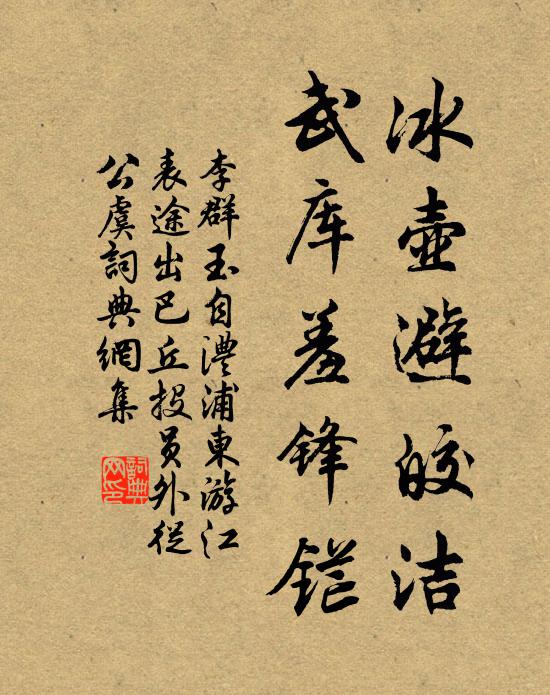 冰壶避皎洁
武库羞锋铓
李群玉自澧浦東游江
表途出巴丘投员外從
公虞詞典網集
詞典
网印